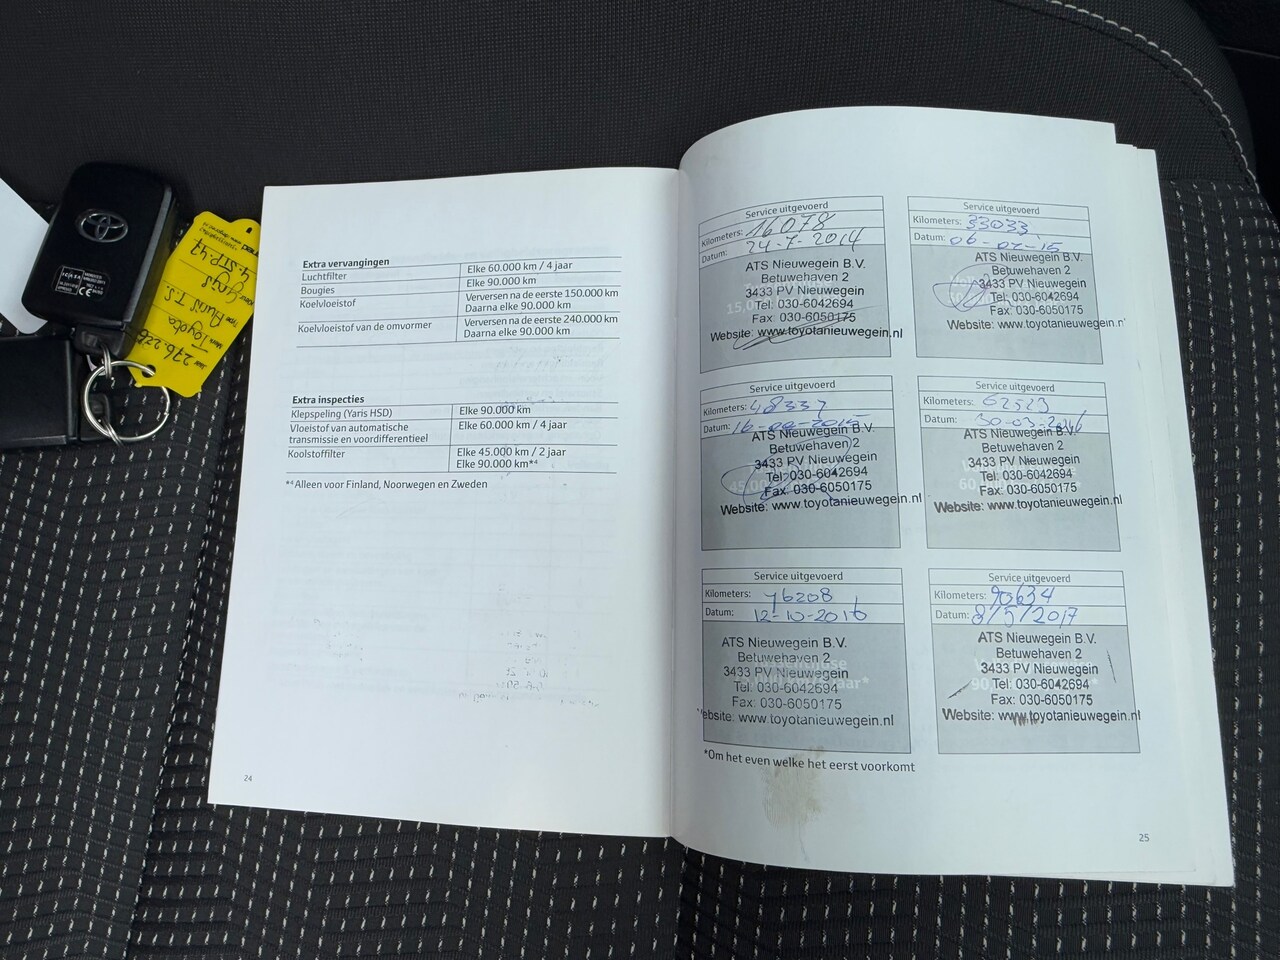 Extra vervangingen
Luchtfilter Elke 60.000 km / 4 jaar
Bougies Elke 90.000 km
Koelvloeistof Verversen na de eerste 150.000 km
Daarna elke 90.000 km
Koelvloeistof van de omvormer Verversen na de eerste 240.000 km
Daarna elke 90.000 km
Extra inspecties
Klepspeling (Yaris HSD) Elke 90.000 km
Vloeistof van automatische
transmissie en voordifferentieel Elke 60.000 km / 4 jaar
Koolstoffilter Elke 45.000 km / 2 jaar
Elke 90.000 km*4
*4 Alleen voor Finland, Noorwegen en Zweden
24
Service uitgevoerd
Kilometers: 16078
Datum: 24-7-2014
ATS Nieuwegein B.V.
Betuwehaven 2
3433 PV Nieuwegein
Tel: 030-6042694
Fax: 030-6050175
Website: www.toyotanieuwegein.nl
Service uitgevoerd
Kilometers: 33033
Datum: 06-02-15
ATS Nieuwegein B.V.
Betuwehaven 2
3433 PV Nieuwegein
Tel: 030-6042694
Fax: 030-6050175
Website: www.toyotanieuwegein.n
Service uitgevoerd
Kilometers: 48337
Datum: 16-09-2015
ATS Nieuwegein B.V.
Betuwehaven 2
3433 PV Nieuwegein
Tel: 030-6042694
Fax: 030-6050175
Website: www.toyotanieuwegein.nl
Service uitgevoerd
Kilometers: 62523
Datum: 30-03-2016
ATS Nieuwegein B.V.
Betuwehaven 2
3433 PV Nieuwegein
Tel: 030-6042694
Fax: 030-6050175
Website: www.toyotanieuwegein.nl
Service uitgevoerd
Kilometers: 76208
Datum: 12-10-2016
ATS Nieuwegein B.V.
Betuwehaven 2
3433 PV Nieuwegein
Tel: 030-6042694
Fax: 030-6050175
ebsite: www.toyotanieuwegein.nl
Service uitgevoerd
Kilometers: 90634
Datum: 8/5/2017
ATS Nieuwegein B.V.
Betuwehaven 2
3433 PV Nieuwegein
Tel: 030-6042694
Fax: 030-6050175
Website: www.toyotanieuwegein.nl
*Om het even welke het eerst voorkomt
25
4-STP-47
Kleur Grijs
Type Auris T.S.
Merk Toyota
276.236